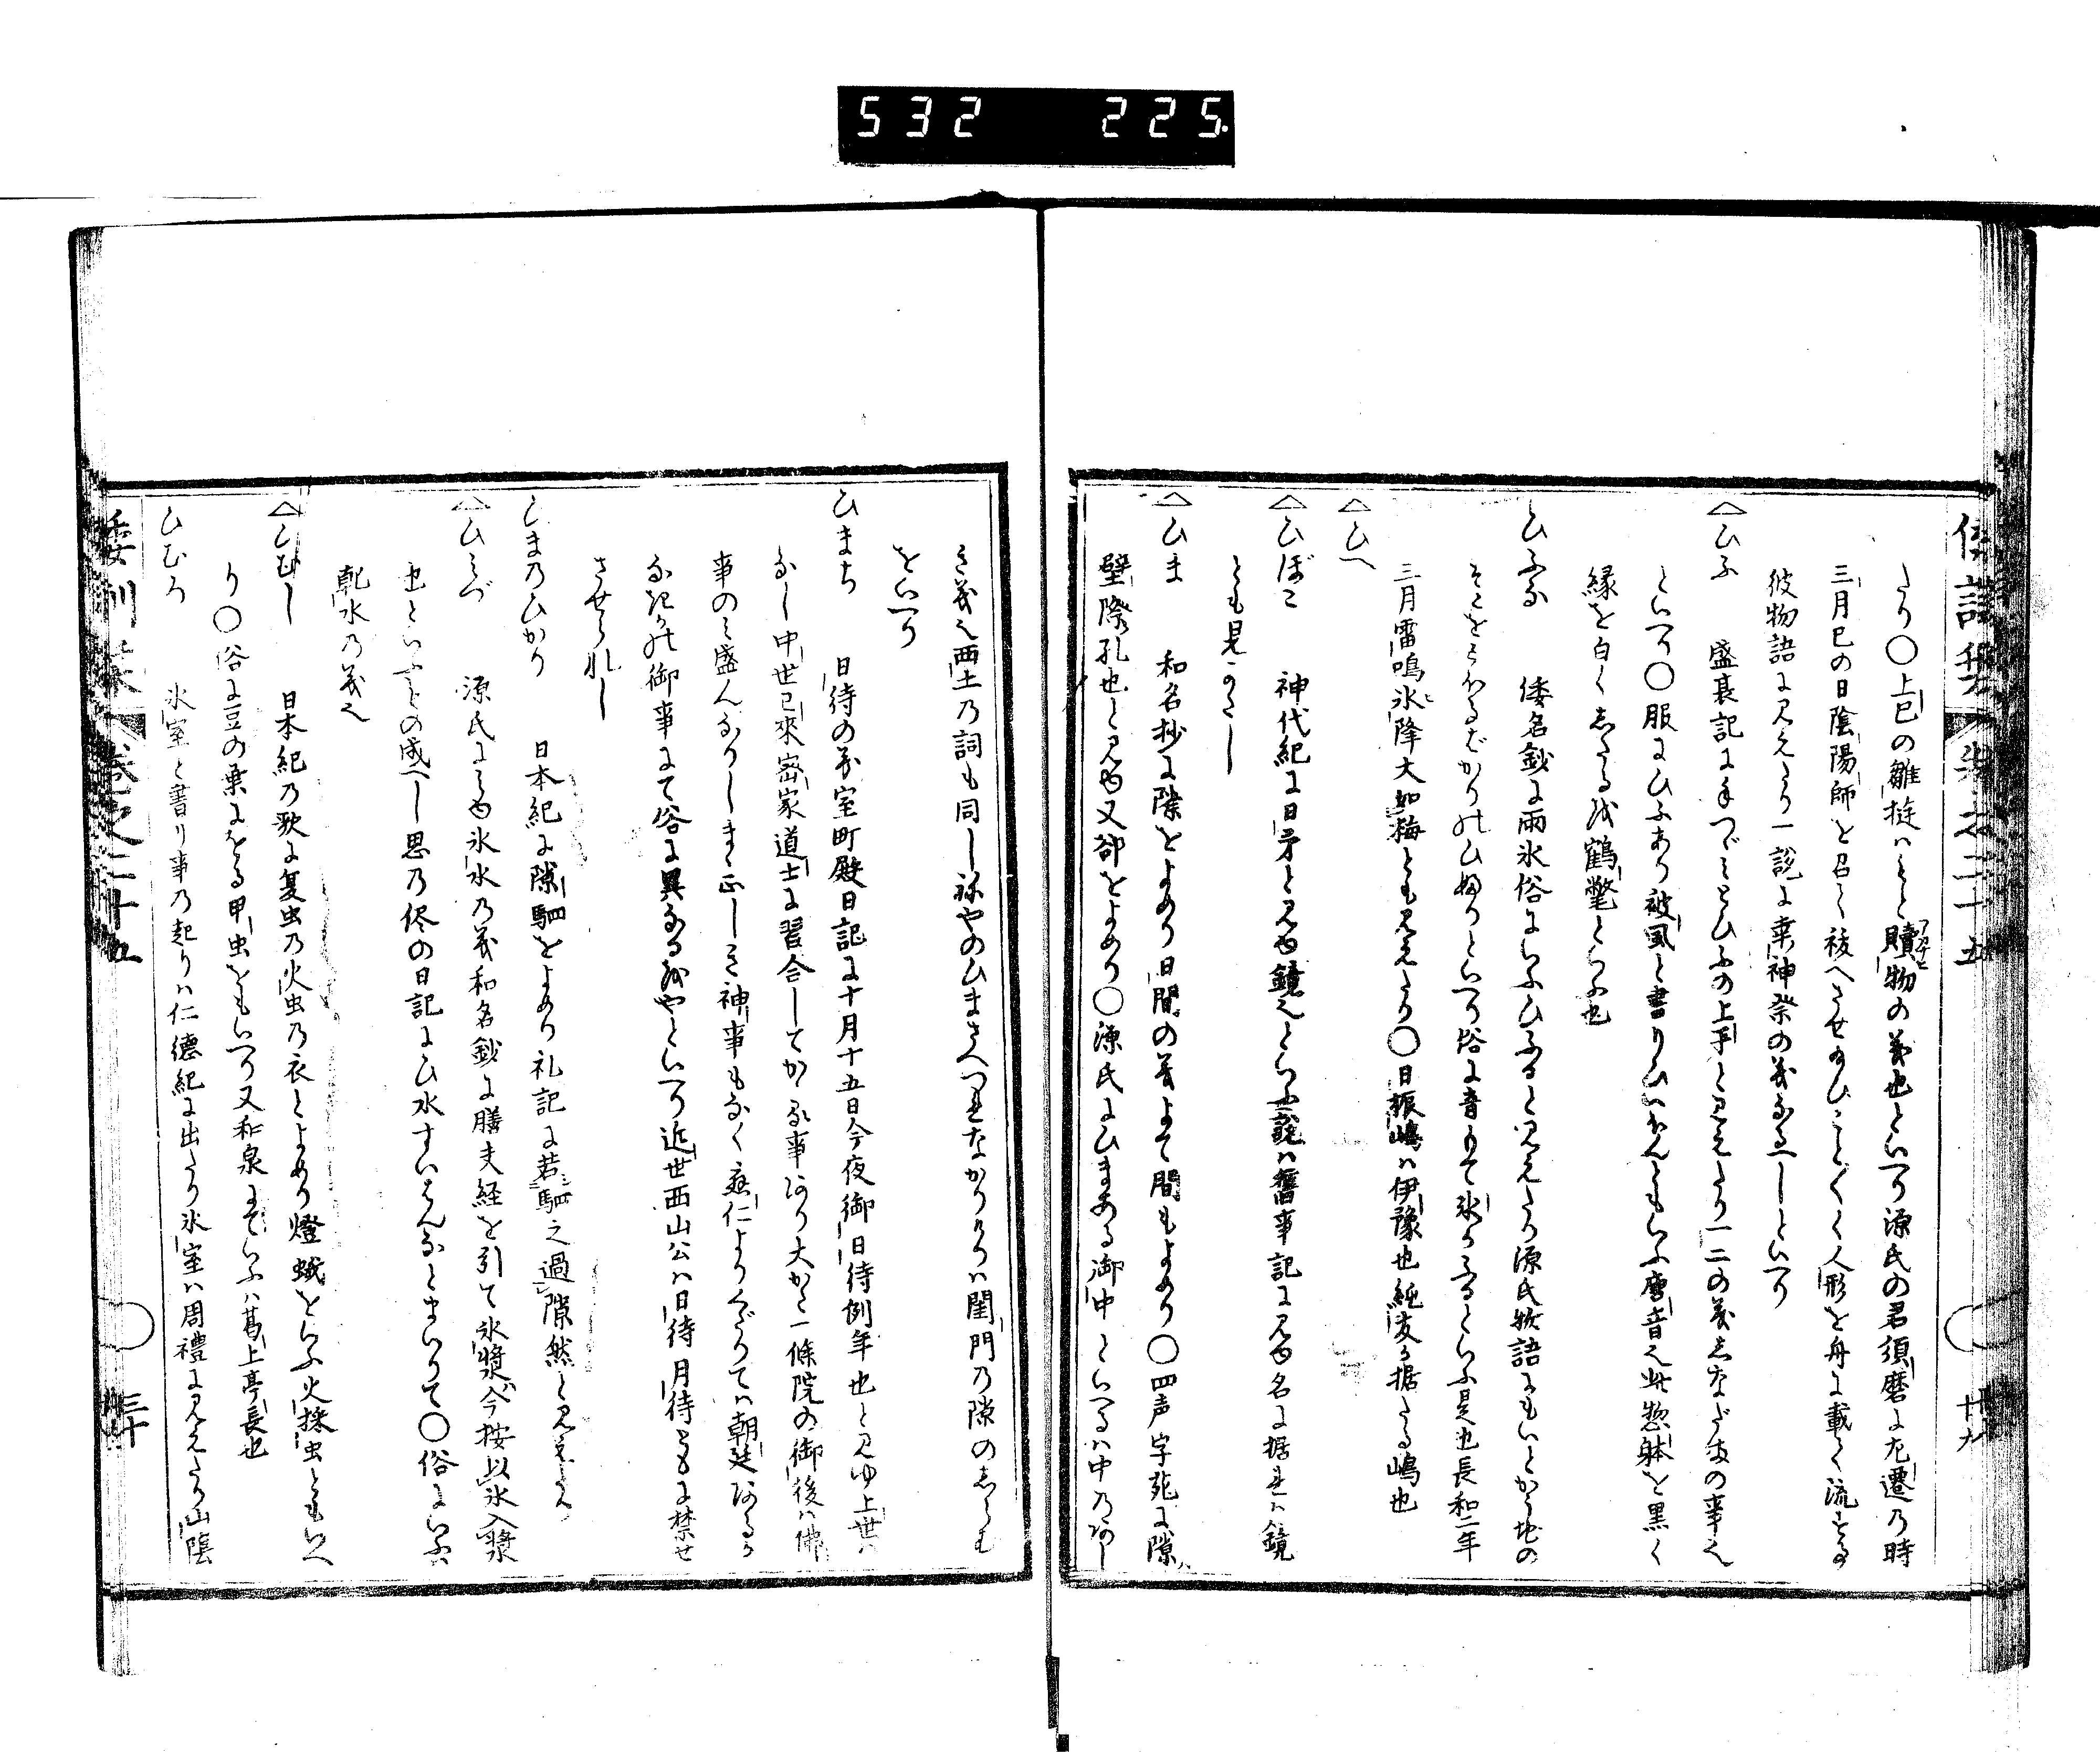 532 225
倭訓栞 巻之二十五 廿九
たり〇上巳の雛遊ハもと贖物の義也といへり源氏の君須磨に左遷乃時
アガナヒ
三月巳の日陰陽師を召て祓へさせ給ひことごとく人形を舟に載て流せる
彼物語に見えたり一説に桒神祭の義なるへしといへり
△ひふ 盛衰記に手つゞミとひふの上手と見えたり一二の義志なだまの事也
といへり〇服にひふあり被風と書りひいふんともいふ唐音也此惣躰を黒く
縁を白くしたるを鶴氅といふ也
ひふる 倭名鈔に雨氷俗にいふひふると見えたり源氏物語にもいとかう地の
そこをとほるばかりのひ降りといへり俗に音もて氷りふるといふ是也長和二年
三月雷鳴氷降大如梅とも見えたり〇日振嶋ハ伊豫也純友か据たる嶋也
△ひへ
△ひぼこ 神代紀に日矛と見ゆ鏡也といふ説ハ舊事記に見ゆ名に据れハ鏡
とも見へかたし
△ひま 和名抄に隙をよめり日間の義よて間もよめり〇四声字苑に隙ハ
壁際孔也と見ゆ又郤をよめり〇源氏にひまある御中といへるハ中乃あし
き義也西土乃詞も同し祢やのひまさへつれなかりけりハ閨門乃隙のしらむ
をいへり
ひまち 日待の義室町殿日記に十月十五日今夜御日待例年也と見ゆ上世ハ
なし中世已來密家道士に習合してかゝる事あり大かた一條院の御後ハ佛
事のミ盛んなりしまゝ正しき神事もなく應仁よりくだりてハ朝廷あるか
なきかの御事にて俗に異なるをやといへり近世西山公ハ日待月待ともに禁せ
させられし
ひまのひかり 日本紀に隙駟をよめり礼記に若駟之過隙然と見えたり
△ひみづ 源氏にみゆ氷水乃義和名鈔に膳夫経を引て氷漿今按以氷入漿
也といふもの成へし思乃侭の日記にひ水すいはんなとまいりて〇俗にいふハ
乾水乃義也
△ひむし 日本紀乃歌に夏虫乃火虫乃衣とよめり燈蛾をいふ火採虫ともいへ
り〇俗に豆の葉にをる甲虫をもいへり又和泉にていふハ葛上亭長也
ひむろ 氷室と書り事乃起りハ仁徳紀に出たり氷室ハ周禮に見えたり山陰
倭訓栞 巻之二十五 三十